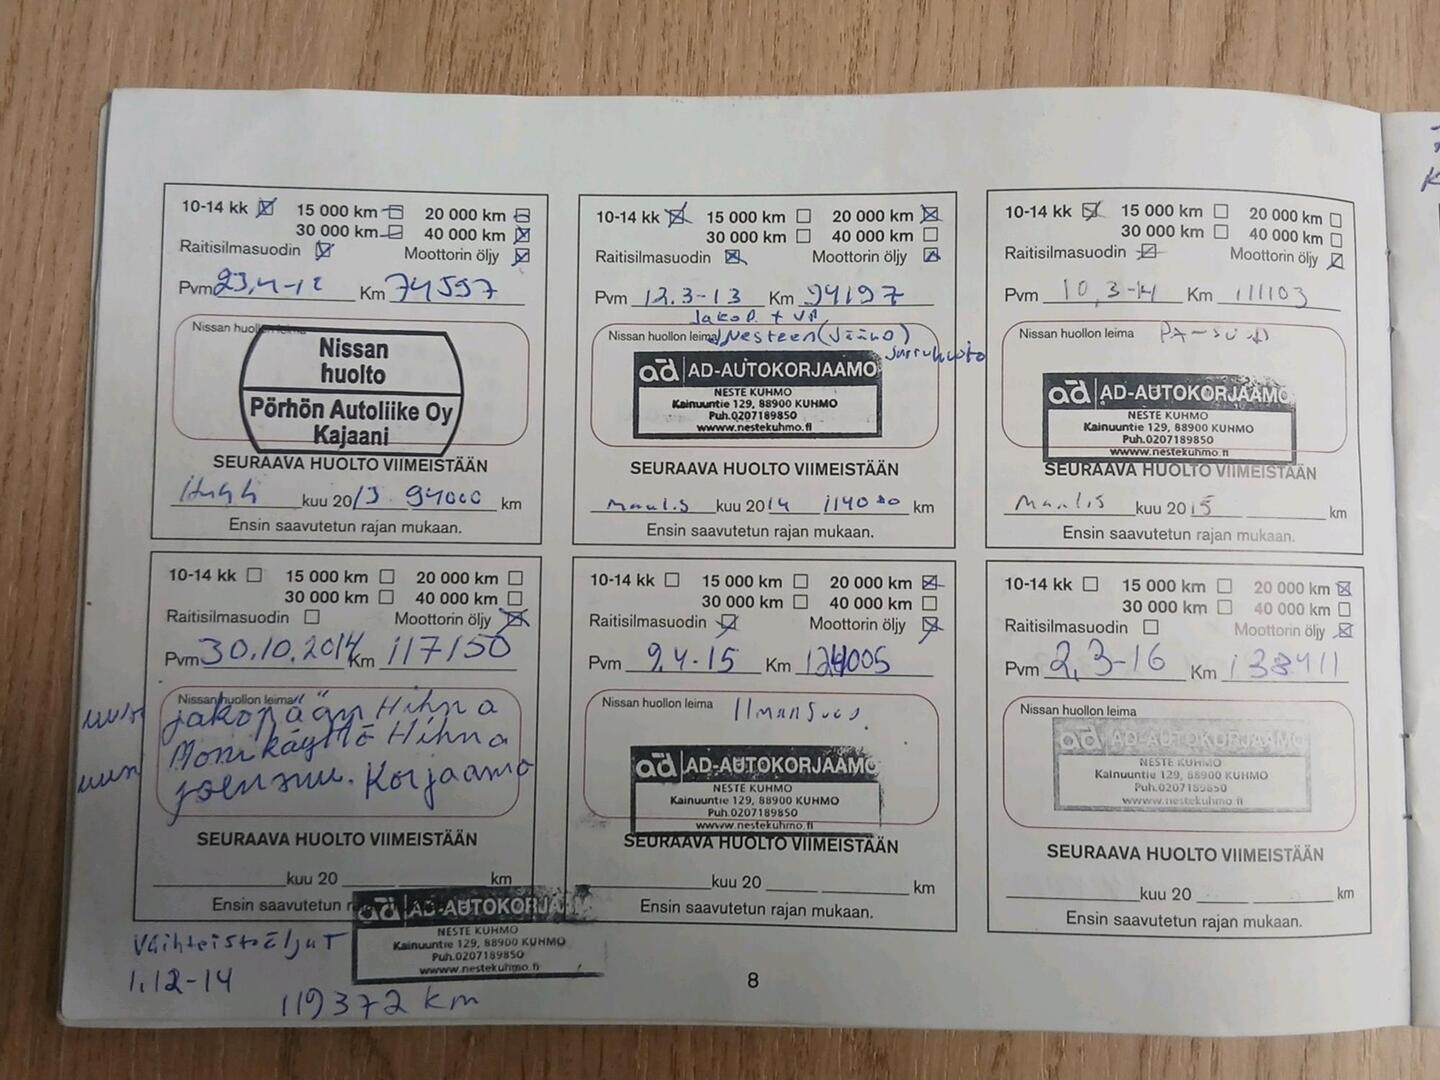 10-14 kk 15 000 km 20 000 km
30 000 km 40 000 km
Raitisilmasuodin Moottorin öljy
Pvm 23.4-12 Km 74597
Nissan huollon leima
Nissan
huolto
Pörhön Autoliike Oy
Kajaani
SEURAAVA HUOLTO VIIMEISTÄÄN
Huhti kuu 2013 94000 km
Ensin saavutetun rajan mukaan.
10-14 kk 15 000 km 20 000 km
30 000 km 40 000 km
Raitisilmasuodin Moottorin öljy
Pvm 12.3-13 Km 94197
Jakop. + VP.
Nissan huollon leima Nesteen (Jääno)
Jarruhuolto
ad AD-AUTOKORJAAMO
NESTE KUHMO
Kainuuntie 129, 88900 KUHMO
Puh.0207189850
www.nestekuhmo.fi
SEURAAVA HUOLTO VIIMEISTÄÄN
maalis kuu 2014 114000 km
Ensin saavutetun rajan mukaan.
10-14 kk 15 000 km 20 000 km
30 000 km 40 000 km
Raitisilmasuodin Moottorin öljy
Pvm 10.3-14 Km 111103
Nissan huollon leima PA-suod
ad AD-AUTOKORJAAMO
NESTE KUHMO
Kainuuntie 129, 88900 KUHMO
Puh.0207189850
www.nestekuhmo.fi
SEURAAVA HUOLTO VIIMEISTÄÄN
maalis kuu 2015 km
Ensin saavutetun rajan mukaan.
10-14 kk 15 000 km 20 000 km
30 000 km 40 000 km
Raitisilmasuodin Moottorin öljy
Pvm 30.10.2014 Km 117150
Nissan huollon leima
uusi jakopään Hihna
Monikäyttö Hihna
uusi Joensuu. Korjaamo
SEURAAVA HUOLTO VIIMEISTÄÄN
kuu 20 km
Ensin saavutetun
ad AD-AUTOKORJAAMO
NESTE KUHMO
Kainuuntie 129, 88900 KUHMO
Puh.0207189850
www.nestekuhmo.fi
Vaihteistoöljyt
1.12-14
119372 km
10-14 kk 15 000 km 20 000 km
30 000 km 40 000 km
Raitisilmasuodin Moottorin öljy
Pvm 9.4-15 Km 124005
Nissan huollon leima Ilmansuod.
ad AD-AUTOKORJAAMO
NESTE KUHMO
Kainuuntie 129, 88900 KUHMO
Puh.0207189850
www.nestekuhmo.fi
SEURAAVA HUOLTO VIIMEISTÄÄN
kuu 20 km
Ensin saavutetun rajan mukaan.
10-14 kk 15 000 km 20 000 km
30 000 km 40 000 km
Raitisilmasuodin Moottorin öljy
Pvm 2.3-16 Km 138411
Nissan huollon leima
ad AD-AUTOKORJAAMO
NESTE KUHMO
Kainuuntie 129, 88900 KUHMO
Puh.0207189850
www.nestekuhmo.fi
SEURAAVA HUOLTO VIIMEISTÄÄN
kuu 20 km
Ensin saavutetun rajan mukaan.
8